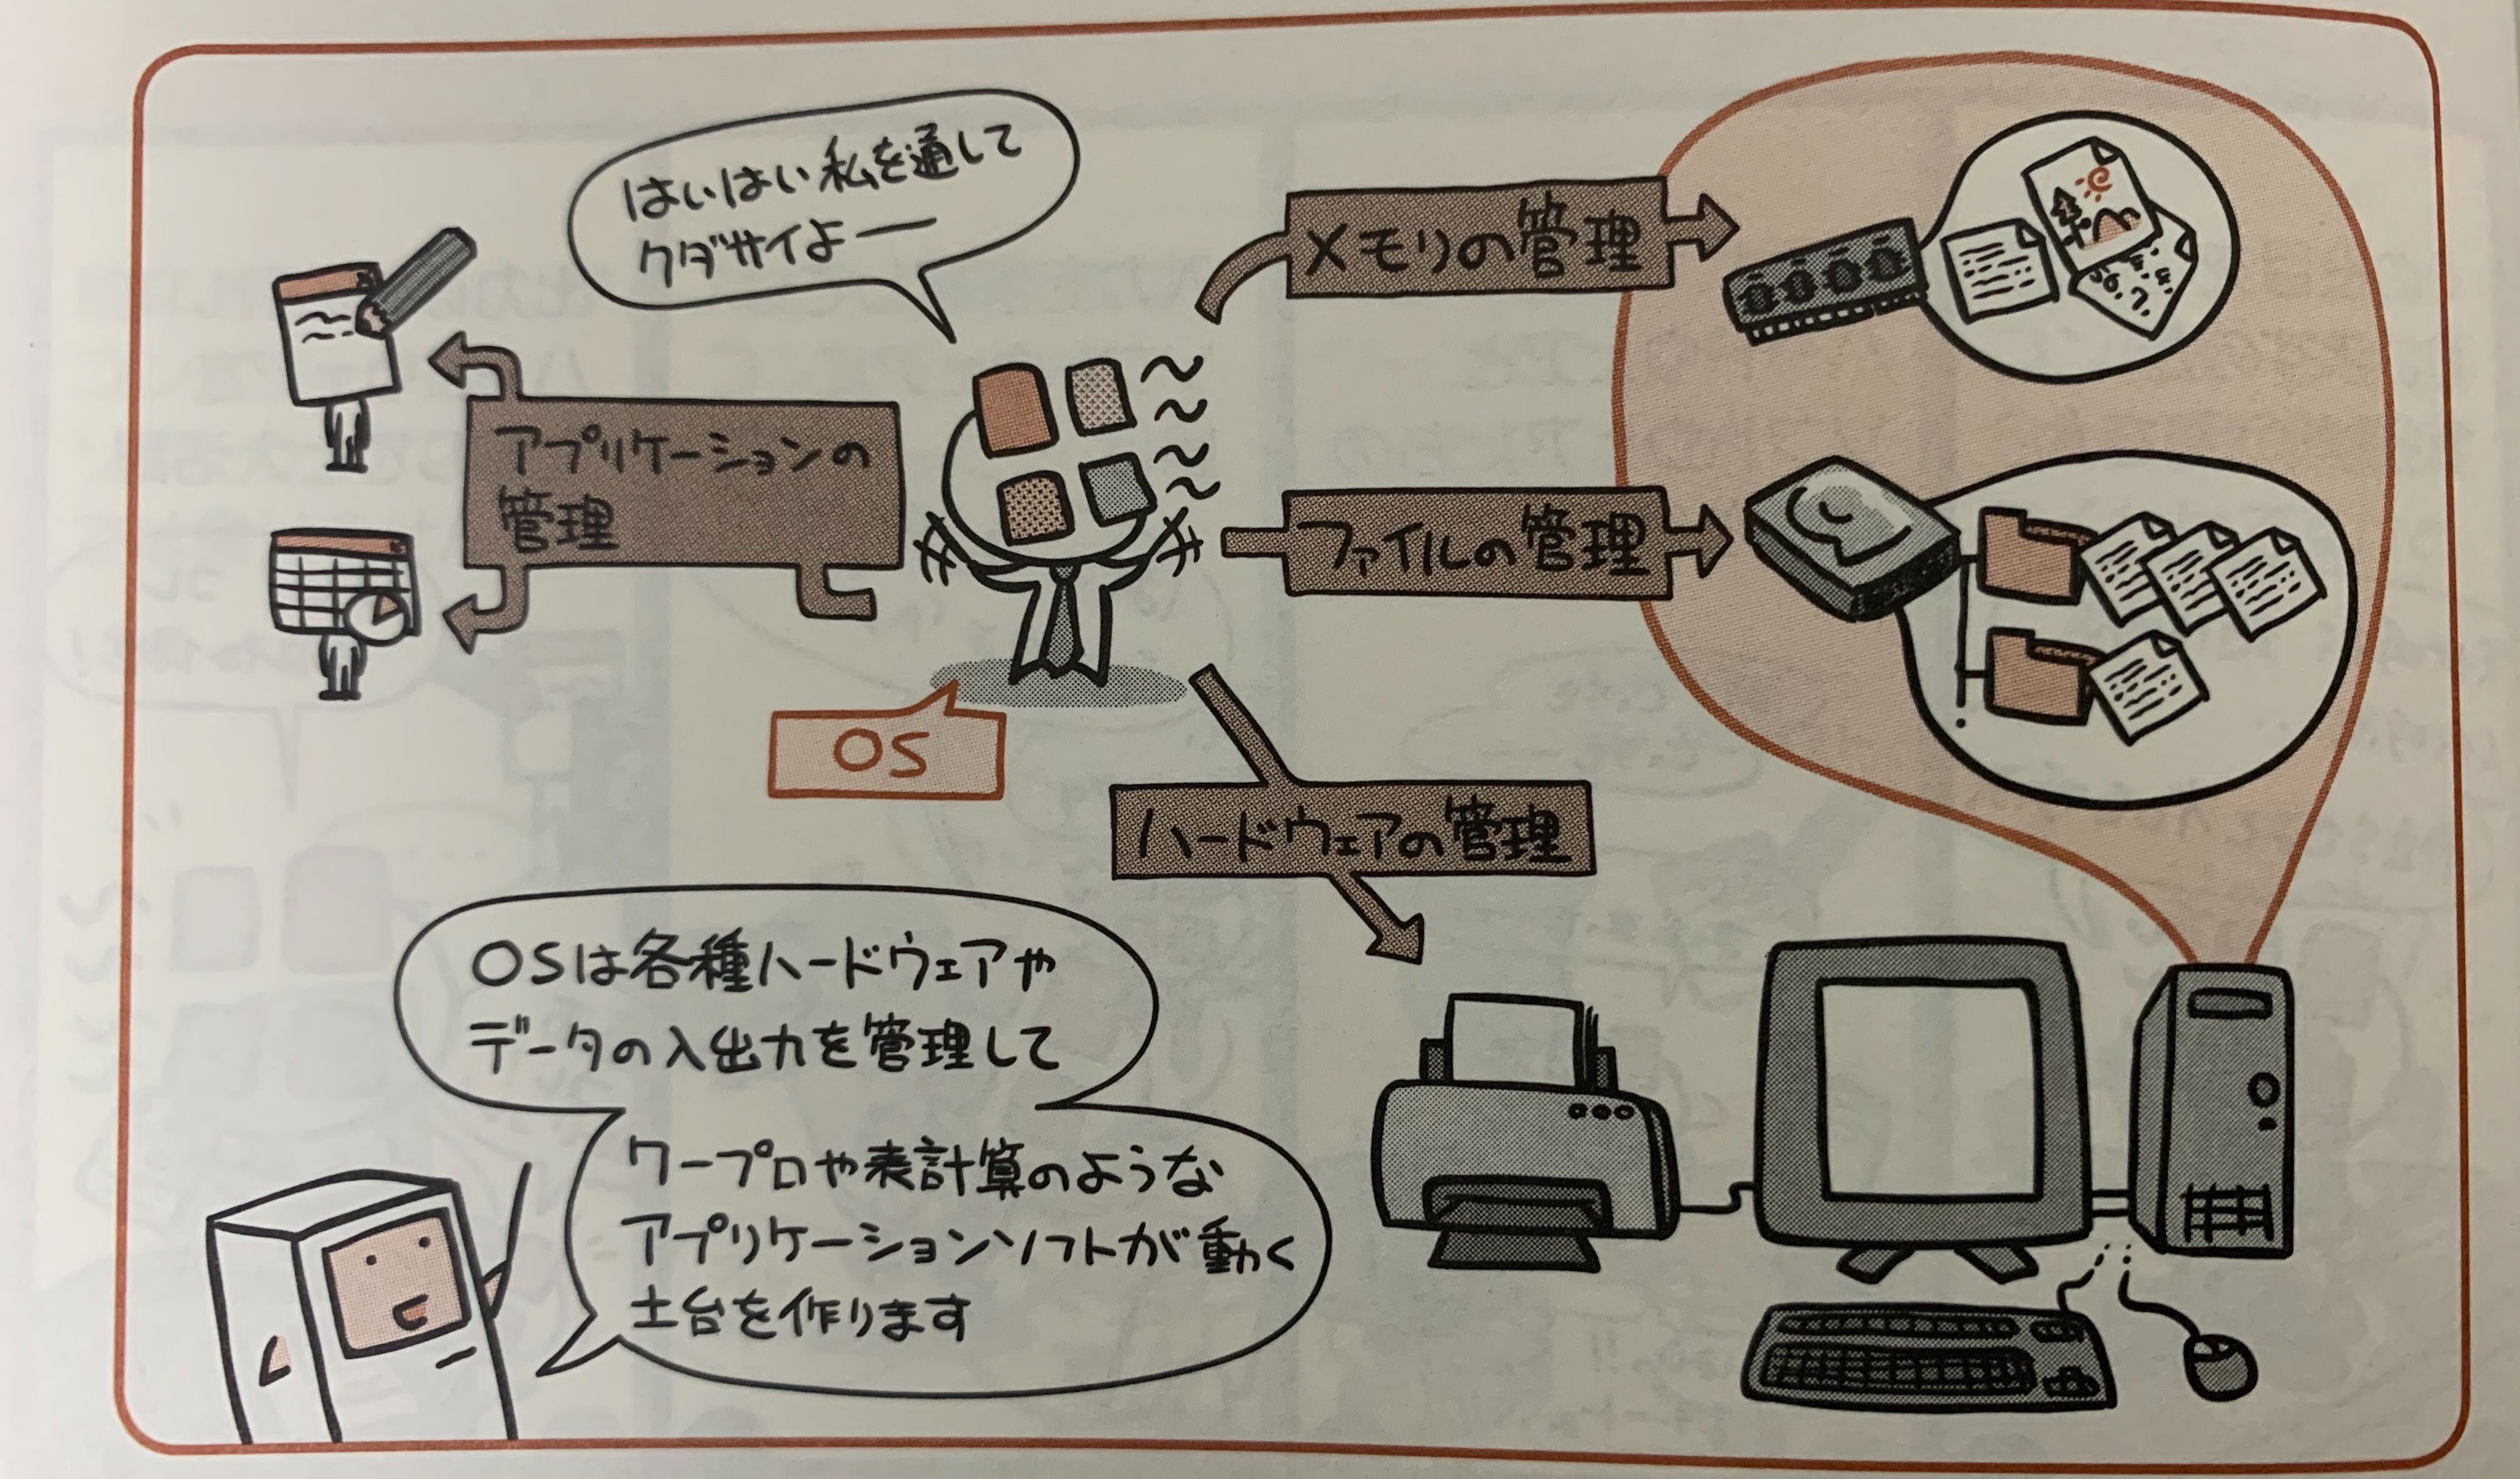 はいはい私を通して
クダサイよー
メモリの管理
アプリケーションの
管理
ファイルの管理
OS
ハードウェアの管理
OSは各種ハードウェアや
データの入出力を管理して
ワープロや表計算のような
アプリケーションソフトが動く
土台を作ります